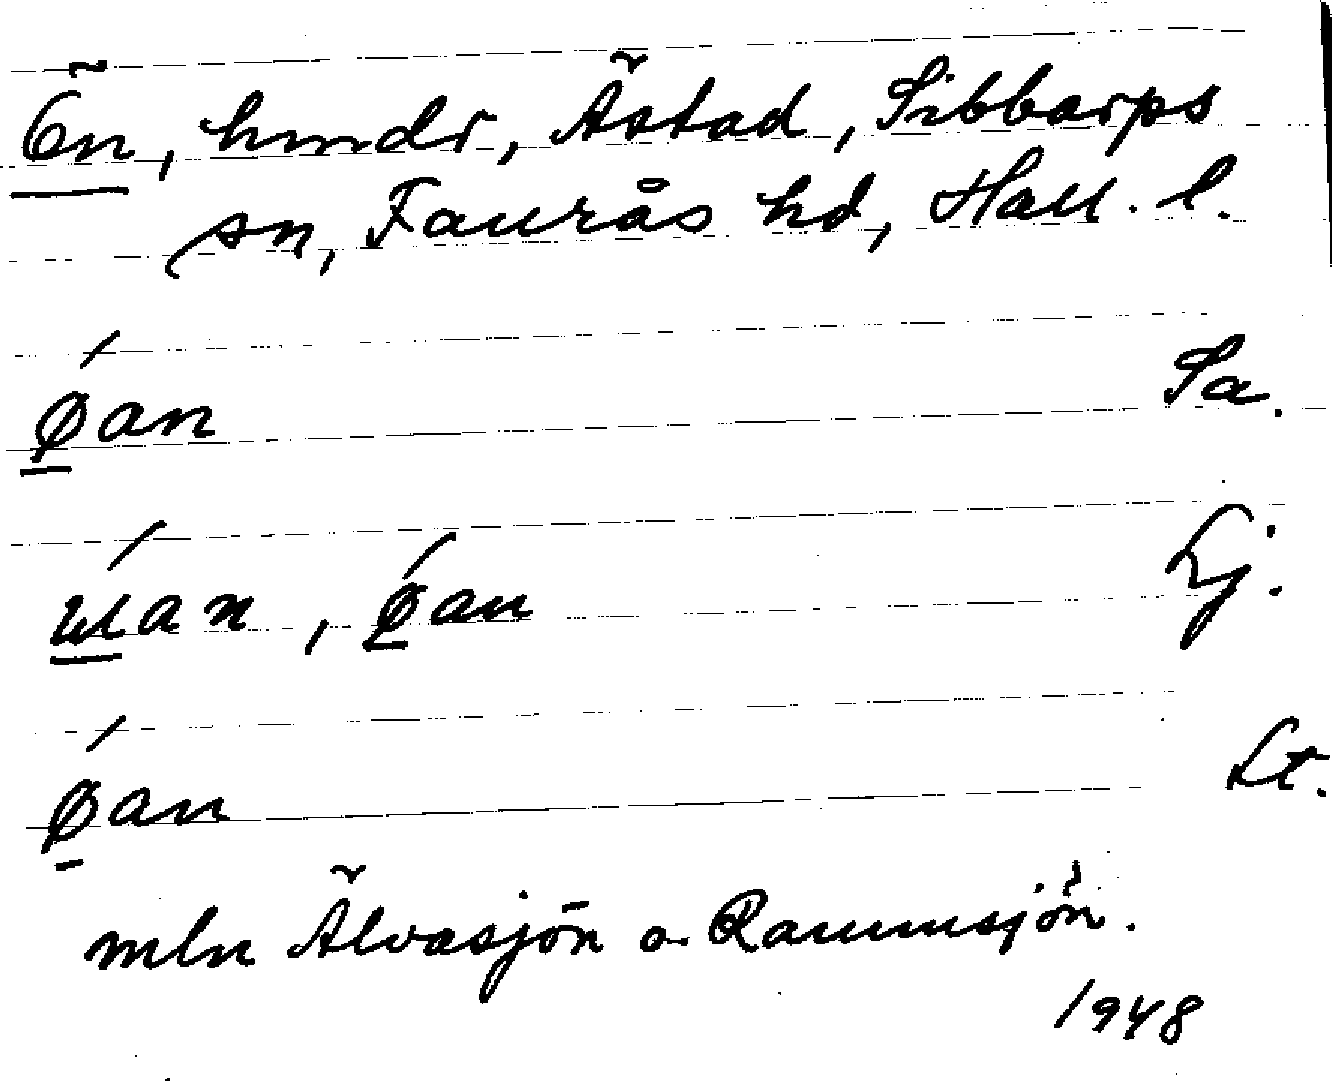 Ön, hmdr, Ästad, Sibbarps
sn, Faurås hd, Hall. l.
ǿan Sa.
an, ǿan Lj.
ǿan Lt.
mln Älvasjön o. Rammsjön.
1948